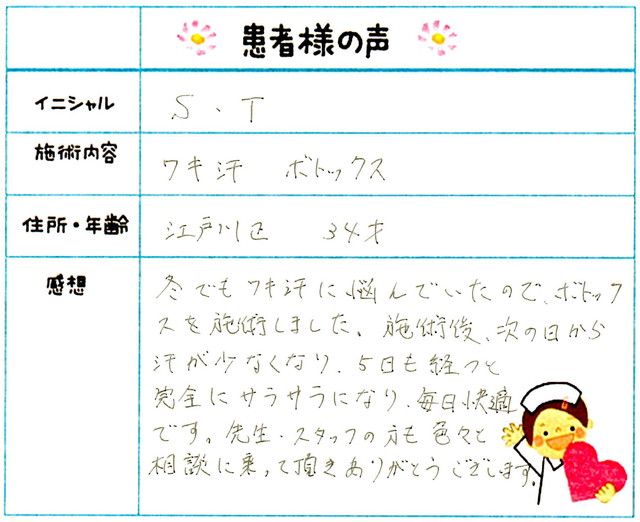 患者様の声
イニシャル S・T
施術内容 ワキ汗 ボトックス
住所・年齢 江戸川区 34才
感想
冬でもワキ汗に悩んでいたので、ボトック
スを施術しました。施術後、次の日から
汗が少なくなり、5日も経つと
完全にサラサラになり、毎日快適
です。先生・スタッフの方も色々と
相談に乗って頂きありがとうございます。